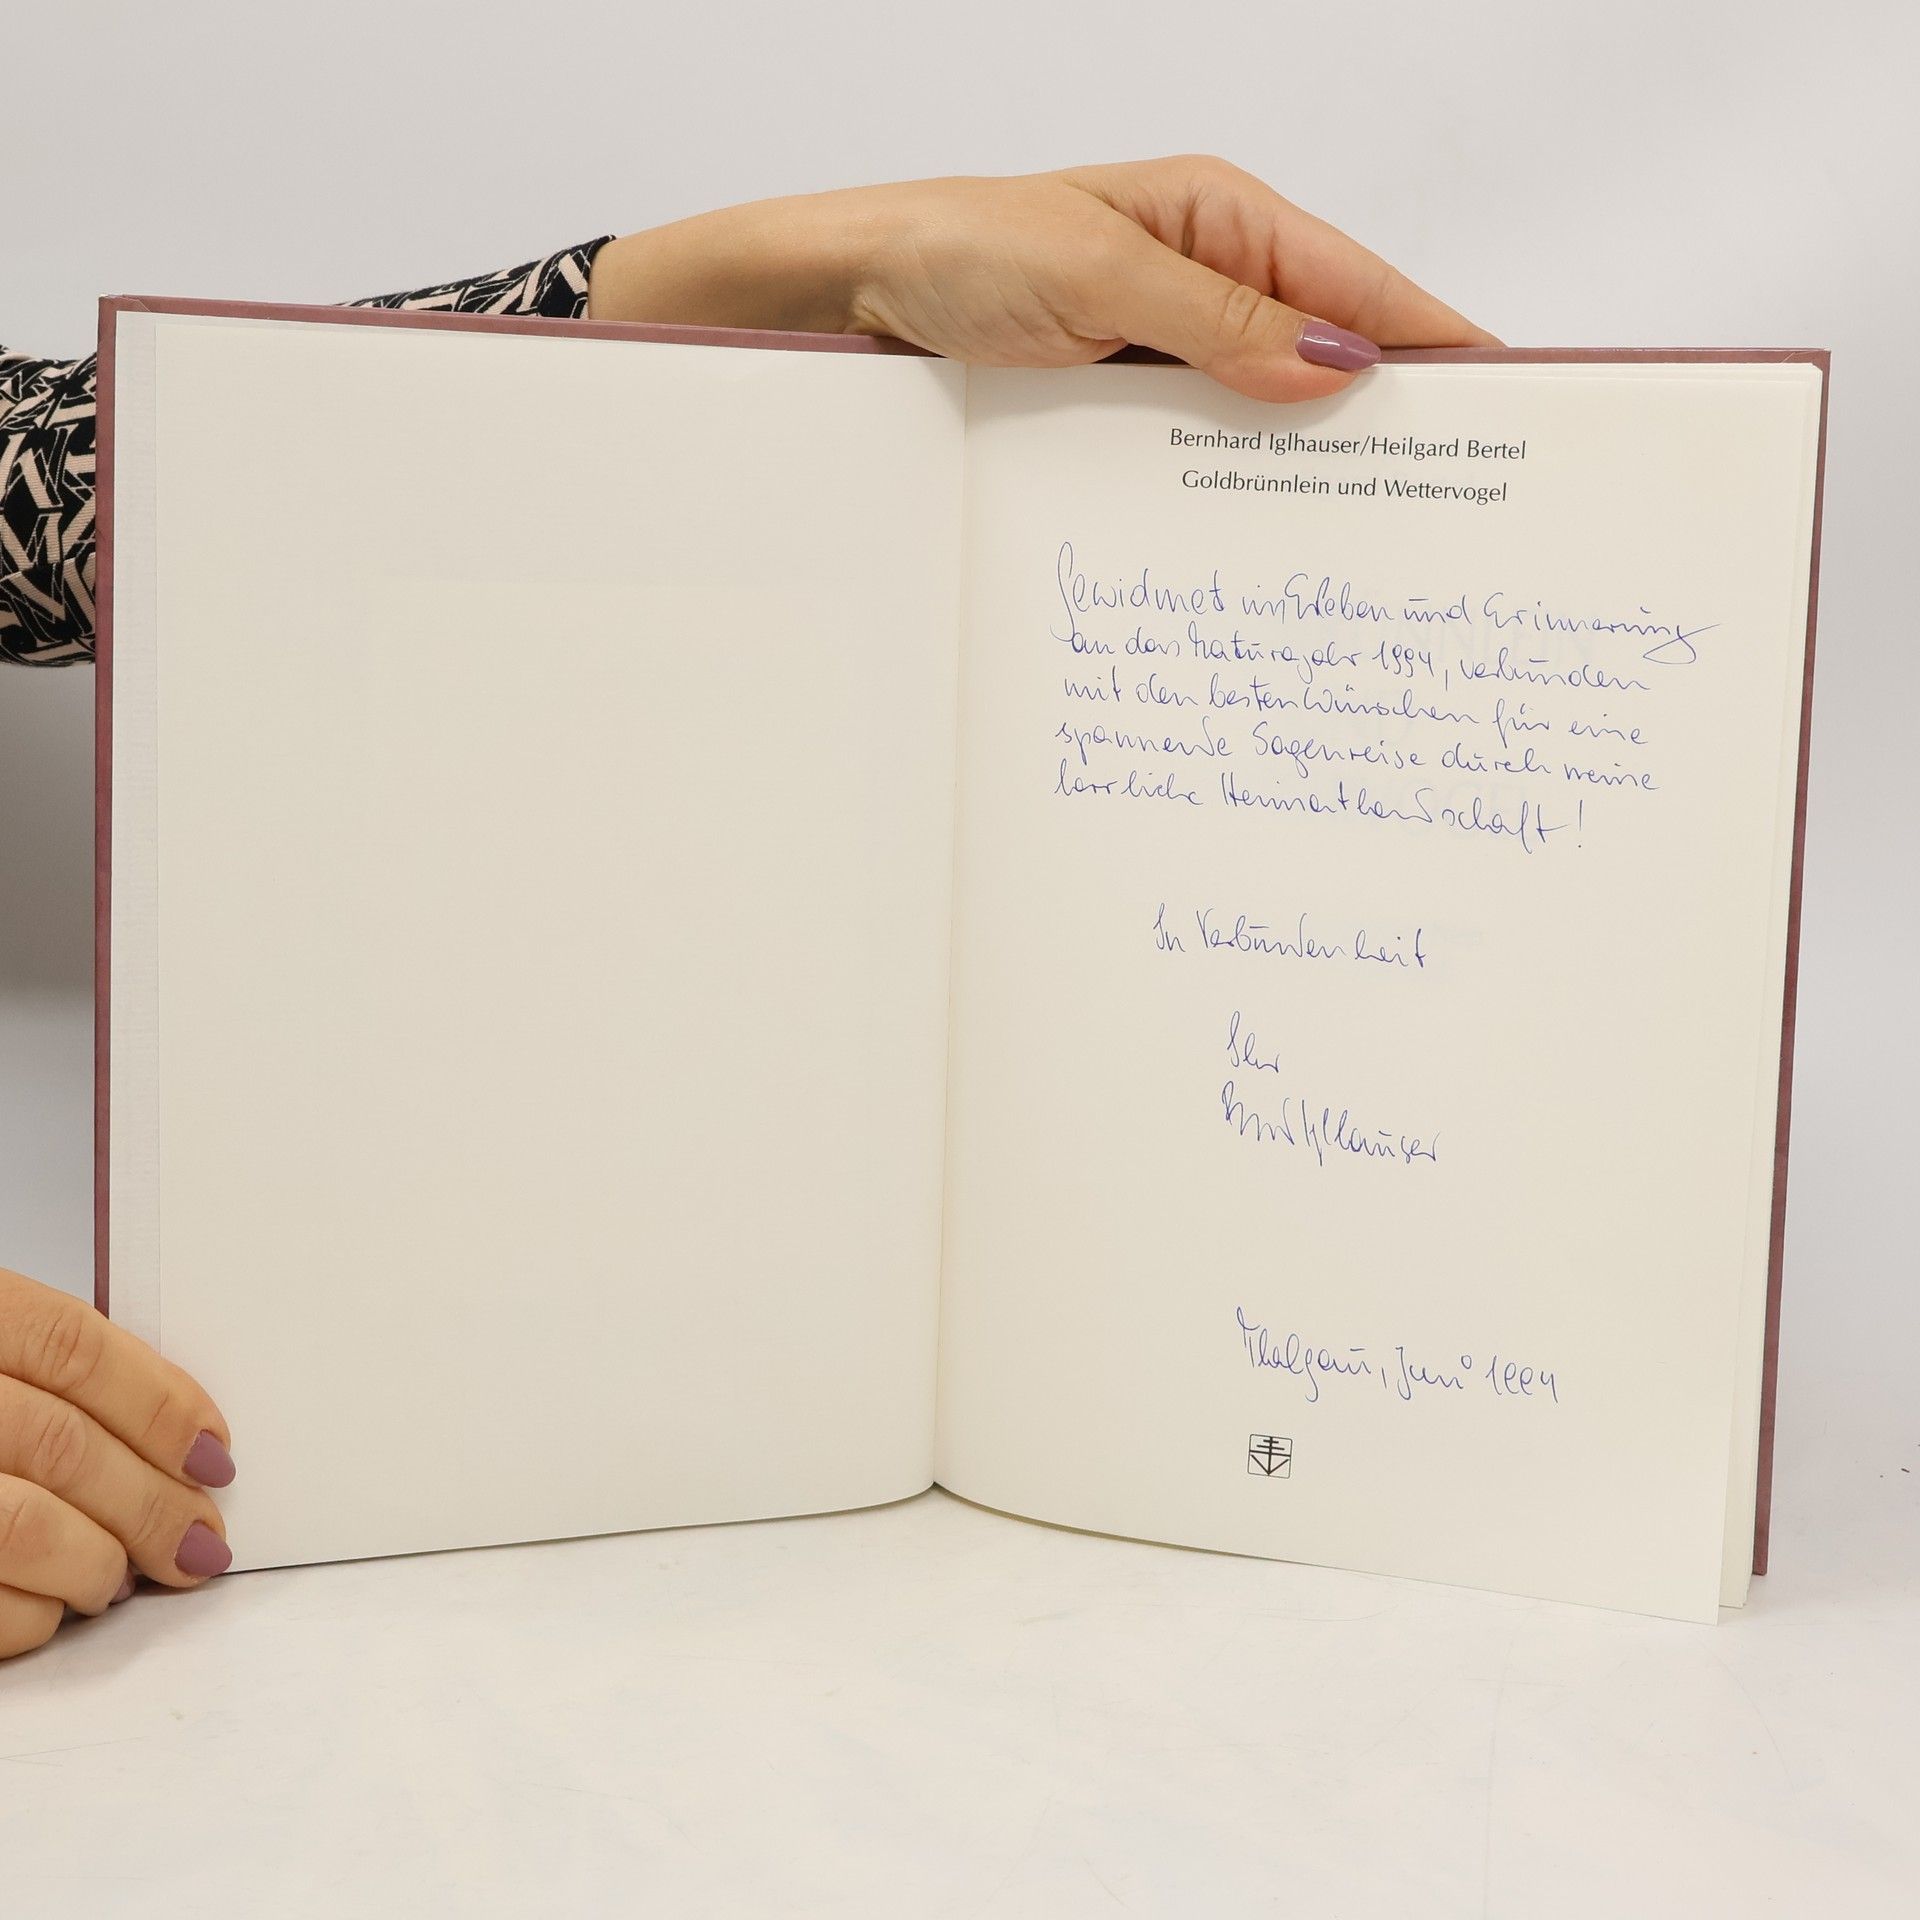 Bernhard Iglhauser/Heilgard Bertel
Goldbrünnlein und Wettervogel
Gewidmet im Erleben und Erinnerung
an das Naturjahr 1994, verbunden
mit den besten Wünschen für eine
spannende Sagenreise durch meine
herrliche Heimatlandschaft!
In Verbundenheit
Ihr
Iglhauser
Thalgau, Juni 1994